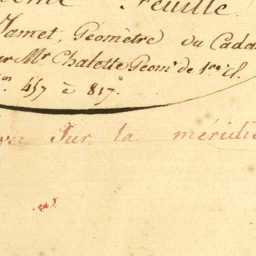 Feuille.
Jamet, Géomètre du Cada
Mr Chalette Géome de 1re cl.
on 457 à 817.
Sur la méridie